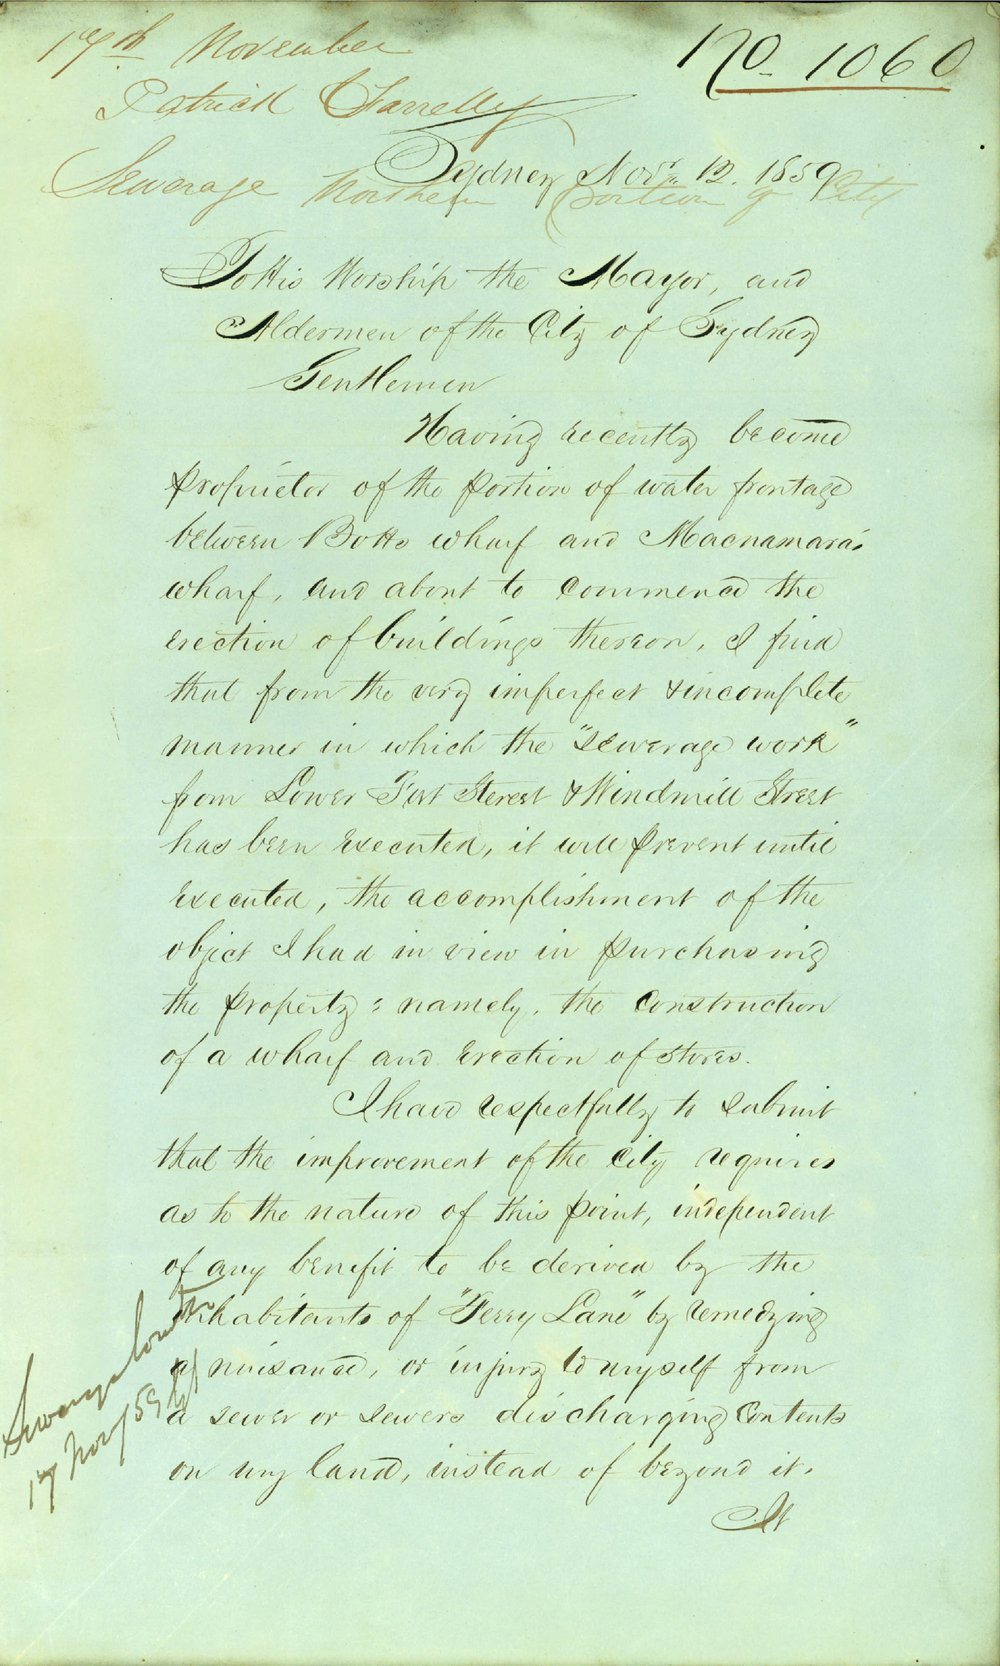 17th November
No. 1060
Patrick Farrelly
Sydney Novr. 12. 1859
Sewerage Northern Portion of City
To His Worship the Mayor, and
Aldermen of the City of Sydney
Gentlemen
Having recently become
proprietor of the portion of water frontage
between Botts wharf and Macnamara's
wharf, and about to commence the
erection of buildings thereon, I find
that from the very imperfect & incomplete
manner in which the "sewerage work"
from Lower Fort Street & Windmill Street
has been executed, it will prevent until
executed, the accomplishment of the
object I had in view in purchasing
the property: namely, the construction
of a wharf and erection of stores.
I have respectfully to submit
that the improvement of the city requires
as to the nature of this point, independent
of any benefit to be derived by the
inhabitants of "Ferry Lane" by remedying
a nuisance, or injury to myself from
a sewer or sewers discharging contents
on my land, instead of beyond it.
It
Sewerage
17 Novr/59